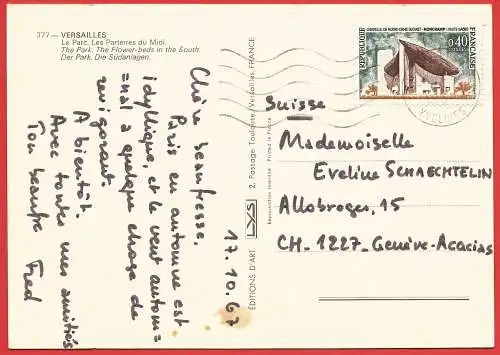 377 — VERSAILLES
Le Parc. Les Parterres du Midi.
The Park. The Flower-beds in the South.
Der Park. Die Südanlagen.
17.10.67
Chère beaufresse,
Paris en automne est
idyllique, et le vent autom=
nal a quelque chose de
revigorant.
A bientôt.
Avec toutes mes amitiés
Ton beaufre Fred
ÉDITIONS D'ART LYS 2, Passage Toulouse, Versailles, FRANCE
Reproduction interdite Printed in France
CHAPELLE DE NOTRE-DAME DU HAUT - RONCHAMP - HAUTE SAÔNE
RÉPUBLIQUE FRANÇAISE
0,40
YVELINES
Suisse
Mademoiselle
Eveline SCHAECHTELIN
Allobroges, 15
CH-1227-Genève-Acacias